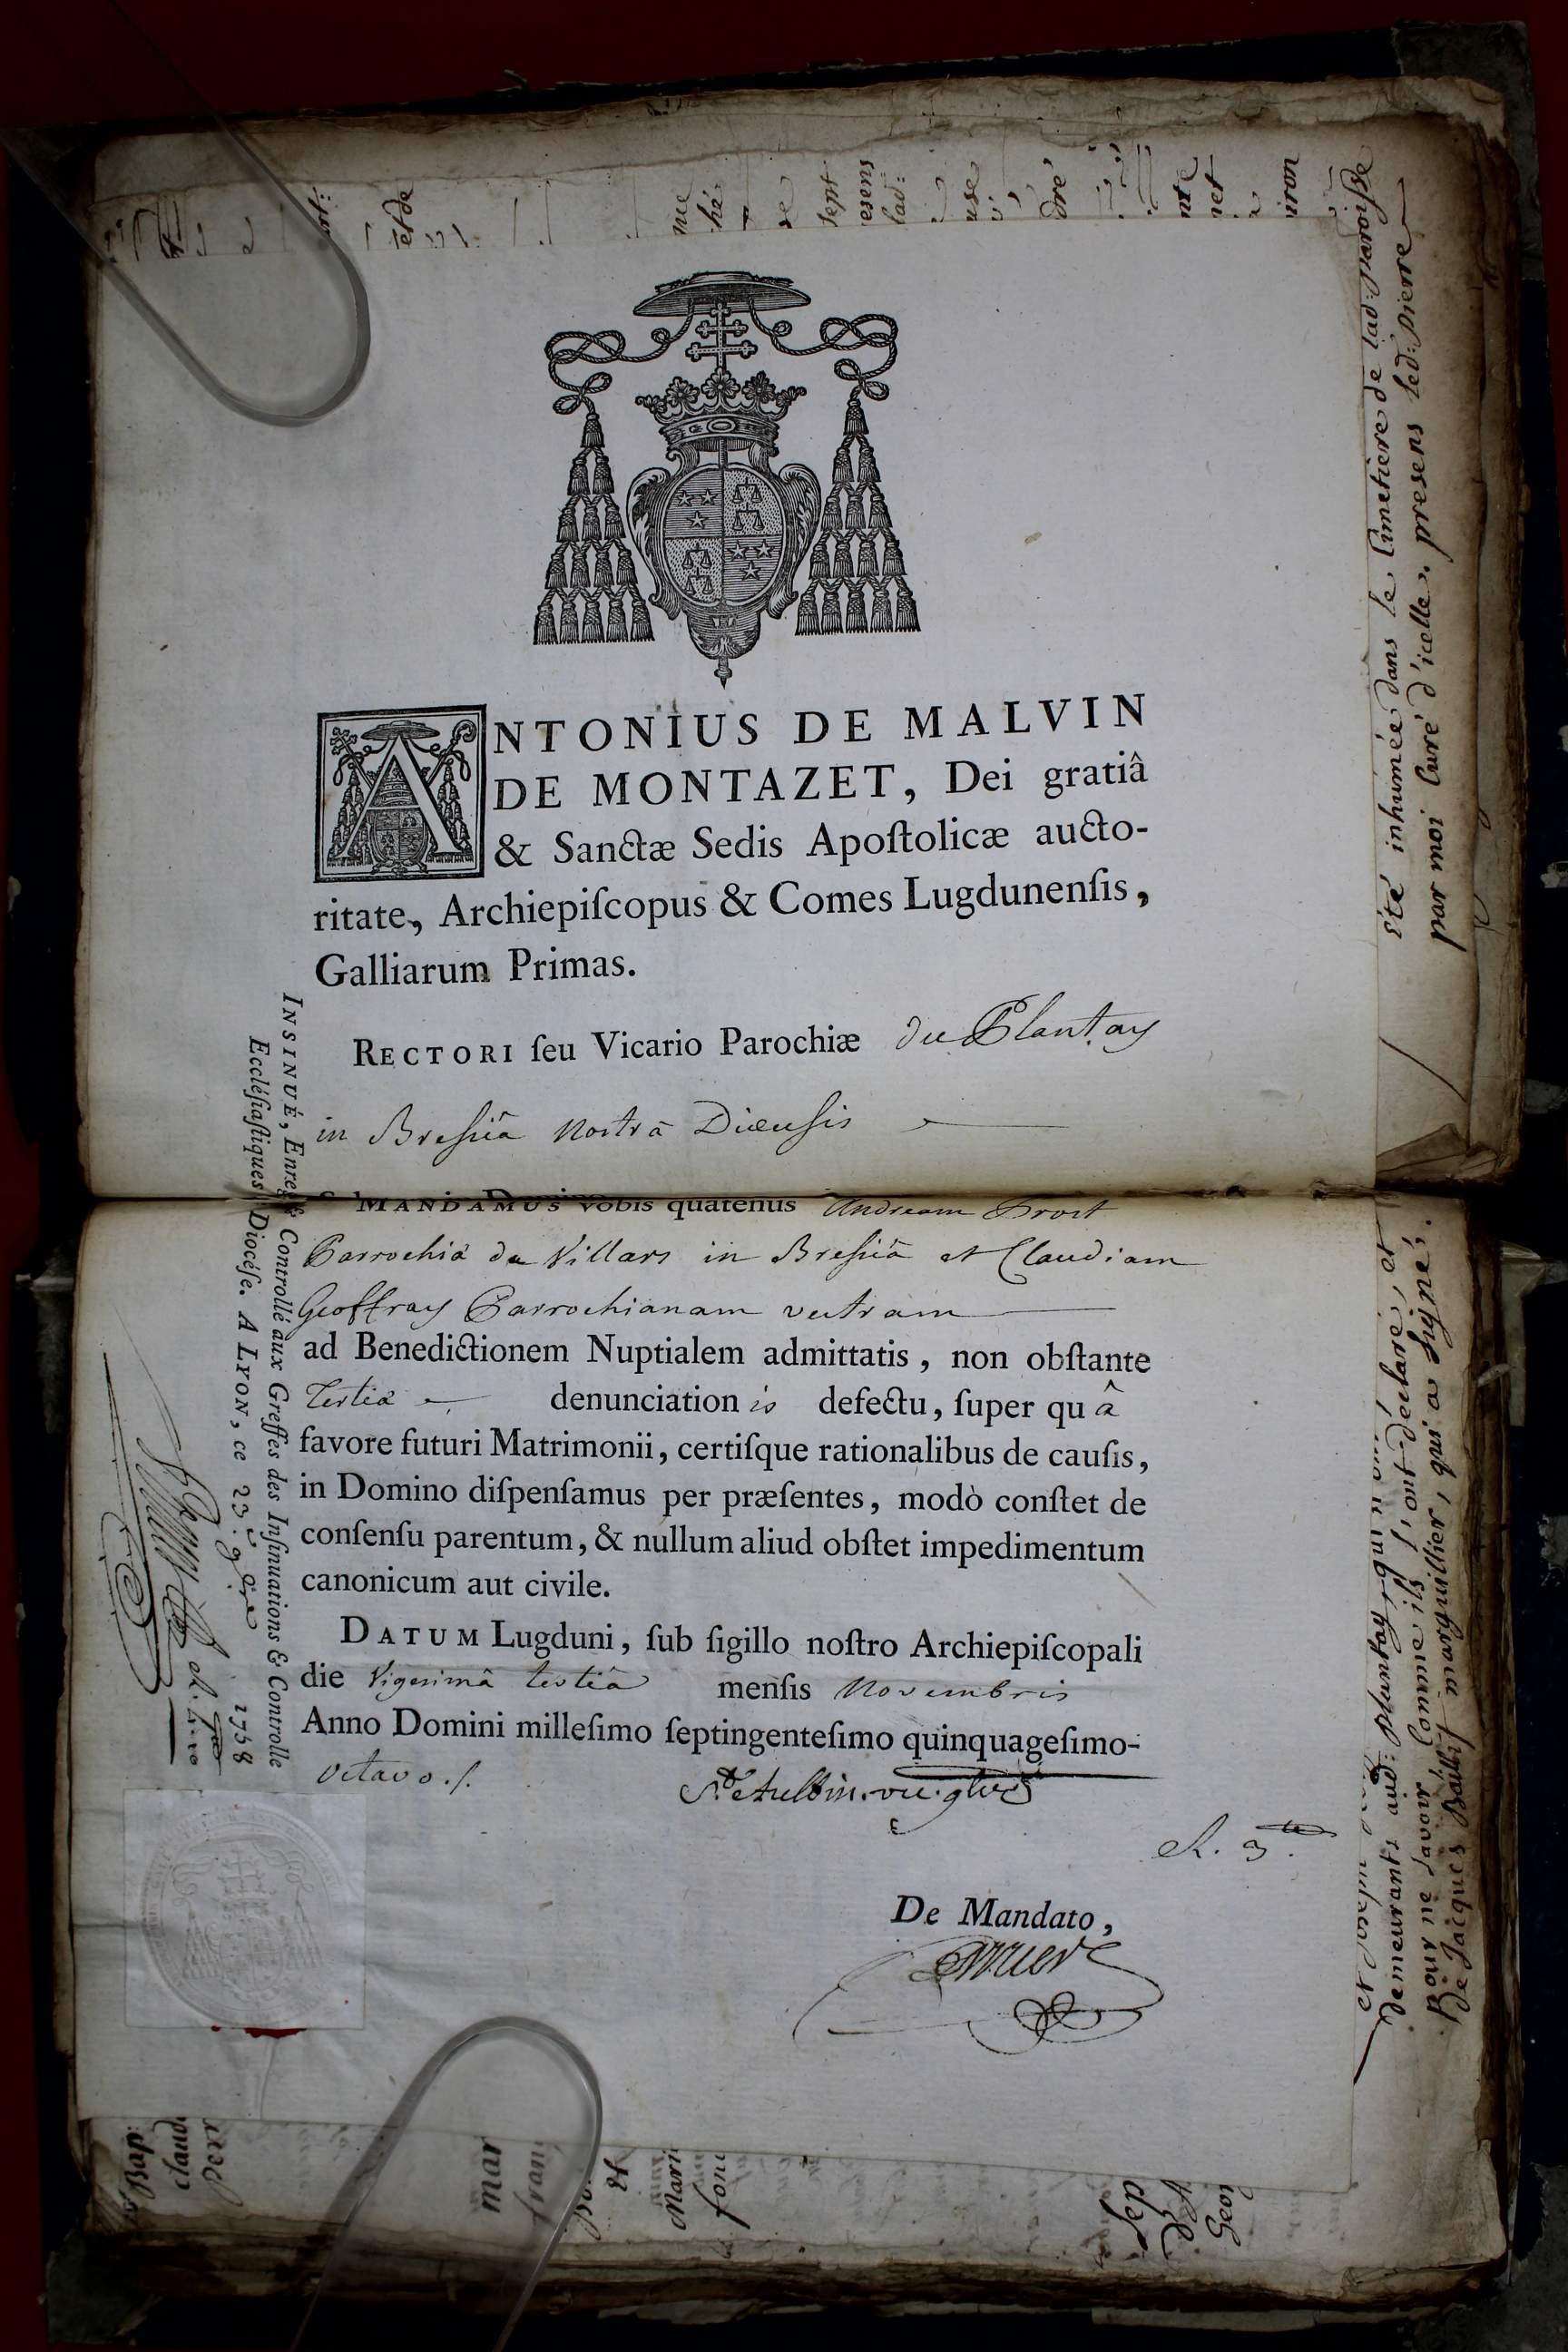 ANTONIUS DE MALVIN
DE MONTAZET, Dei gratiâ
& Sanctæ Sedis Apoſtolicæ aucto-
ritate, Archiepiſcopus & Comes Lugdunenſis,
Galliarum Primas.
RECTORI ſeu Vicario Parochiæ du Plantay
in Breſſiâ Nostrâ Diœcesis
MANDAMUS vobis quatenus Andream Prost
Parrochiæ du Villars in Breſſiâ et Claudiam
Geoffray Parrochianam vestram
ad Benedictionem Nuptialem admittatis, non obſtante
Tertiæ denunciationis defectu, ſuper quâ
favore futuri Matrimonii, certiſque rationalibus de cauſis,
in Domino diſpenſamus per præſentes, modò conſtet de
conſenſu parentum, & nullum aliud obſtet impedimentum
canonicum aut civile.
DATUM Lugduni, ſub ſigillo noſtro Archiepiſcopali
die Vigesimâ tertiâ menſis Novembris
Anno Domini milleſimo ſeptingenteſimo quinquageſimo-
octavo ./.
R. 3
De Mandato,
INSINUÉ, Enreg. & Controllé aux Greffes des Inſinuations & Controlle
Eccléſiaſtiques Diocéſe. A LYON, ce 23. 9bre 1758
été inhumée dans le Cimetiere de lad: paroiſse
par moi Curé d'icelle. presens led: pierre
demeurants aud: plantay, qui n'ont
Pour ne savoir, Comme ils l'ont déclaré, et
De Jacques Bailly marguillier, qui a signé.